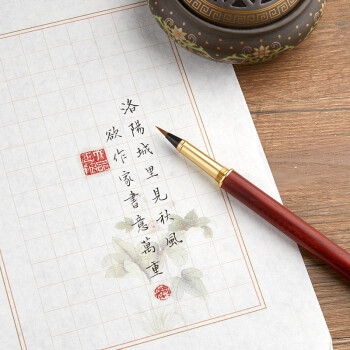 洛陽城里見秋風
欲作家書意萬重